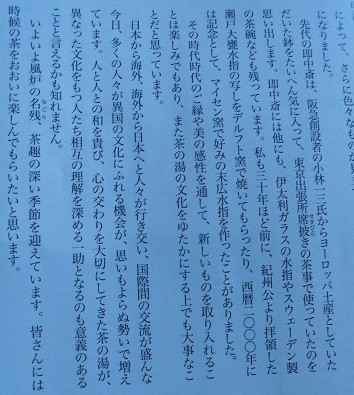 によって、さらに色々なものが
になりました。
先代の即中斎は、阪急創設者の小林一三氏からヨーロッパ土産としていた
だいた鉢をたいへん気に入って、東京出張所席披きの茶事で使っていたのを
思い出します。即中斎には他にも、伊太利ガラスの水指やスウェーデン製
の茶碗なども残っています。私も三十年ほど前に、紀州公より拝領した
瀬戸大甕外指の写しをデルフト窯で焼いてもらったり、西暦二〇〇〇年に
は記念として、マイセン窯で好みの末広水指を作ったことがありました。
その時代時代のご縁や美の感性を通して、新しいものを取り入れるこ
とは楽しみでもあり、また茶の湯の文化をゆたかにする上でも大事なこ
とだと思っています。
日本から海外、海外から日本へと人々が行き交い、国際間の交流が盛んな
今日、多くの人々が異国の文化にふれる機会が、思いもよらぬ勢いで増え
ています。人と人との和を貴び、心の交わりを大切にしてきた茶の湯が、
異なった文化をもつ人たち相互の理解を深める一助となるのも意義のある
ことと言えるかも知れません。
いよいよ風炉の名残、茶趣の深い季節を迎えています。皆さんには
時候の茶をおおいに楽しんでもらいたいと思います。